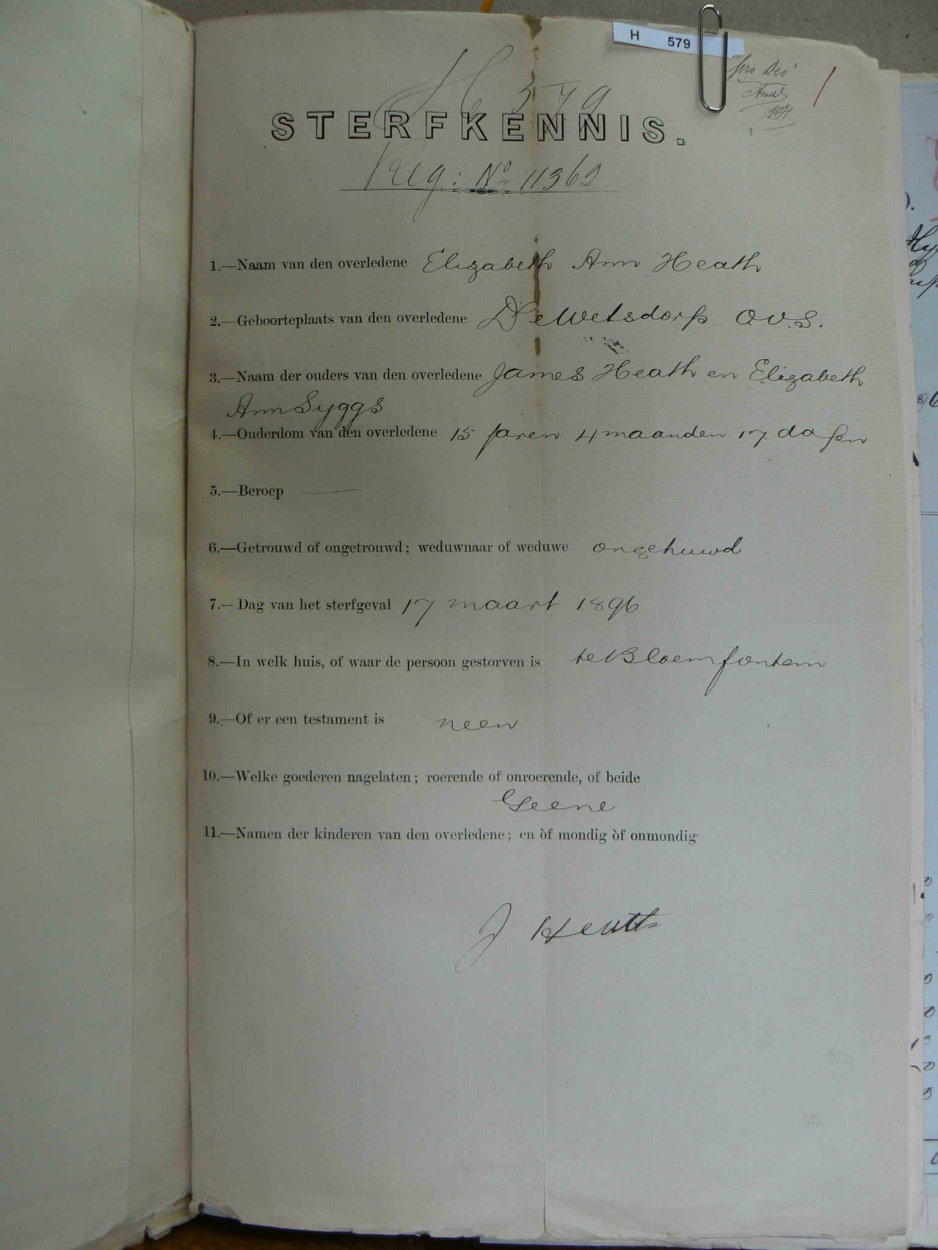 H 579
H 579
STERFKENNIS.
Reg: No 11362
1.—Naam van den overledene Elizabeth Ann Heath
2.—Geboorteplaats van den overledene DeWetsdorp O.V.S.
3.—Naam der ouders van den overledene James Heath en Elizabeth
Ann Syggs
4.—Ouderdom van den overledene 15 jaren 4 maanden 17 dagen
5.—Beroep —
6.—Getrouwd of ongetrouwd; weduwnaar of weduwe ongehuwd
7.—Dag van het sterfgeval 17 maart 1896
8.—In welk huis, of waar de persoon gestorven is te Bloemfontein
9.—Of er een testament is neen
10.—Welke goederen nagelaten; roerende of onroerende, of beide
Geene
11.—Namen der kinderen van den overledene; en òf mondig òf onmondig
J Heath